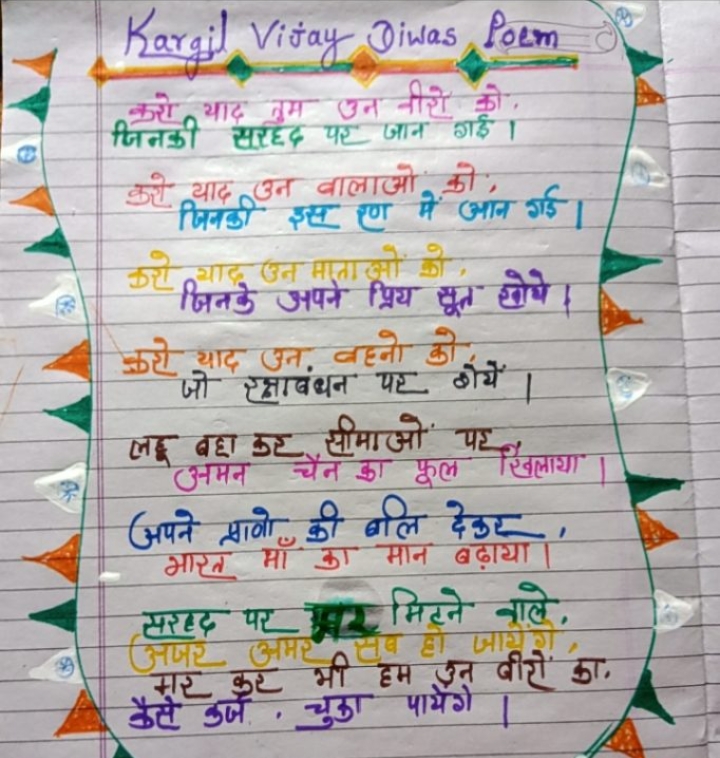 Kargil Vijay Diwas Poem
करो याद तुम उन वीरो को,
जिनकी सरहद पर जान गई।
करो याद उन बालाओ को,
जिनकी इस रण में आन गई।
करो याद उन माताओं को,
जिनके अपने प्रिय सूत खोये।
करो याद उन बहनो को,
जो रक्षाबंधन पर रोयें।
लहू बहा कर सीमाओं पर,
अमन चैन का फूल खिलाया।
अपने प्राणो की बलि देकर,
भारत माँ का मान बढ़ाया।
सरहद पर मर मिटने वाले,
अजर अमर सब हो जायेंगे,
मर कर भी हम उन वीरों का,
कैसे कर्ज, चुका पायेंगे।